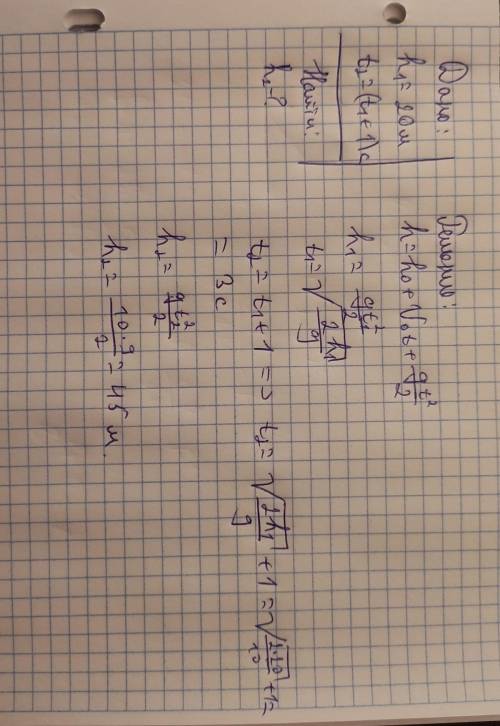 Дано:
h₁ = 20 м
t₂ = (t₁ + 1) с
Найти:
h₂ - ?
Решение:
h = h₀ + V₀t + gt²/2
h₁ = gt₁²/2
t₁ = √(2h₁/g)
t₂ = t₁ + 1 => t₂ = √(2h₁/g) + 1 = √(2·20/10) + 1 =
= 3 с
h₂ = gt₂²/2
h₂ = 10·9/2 = 45 м.